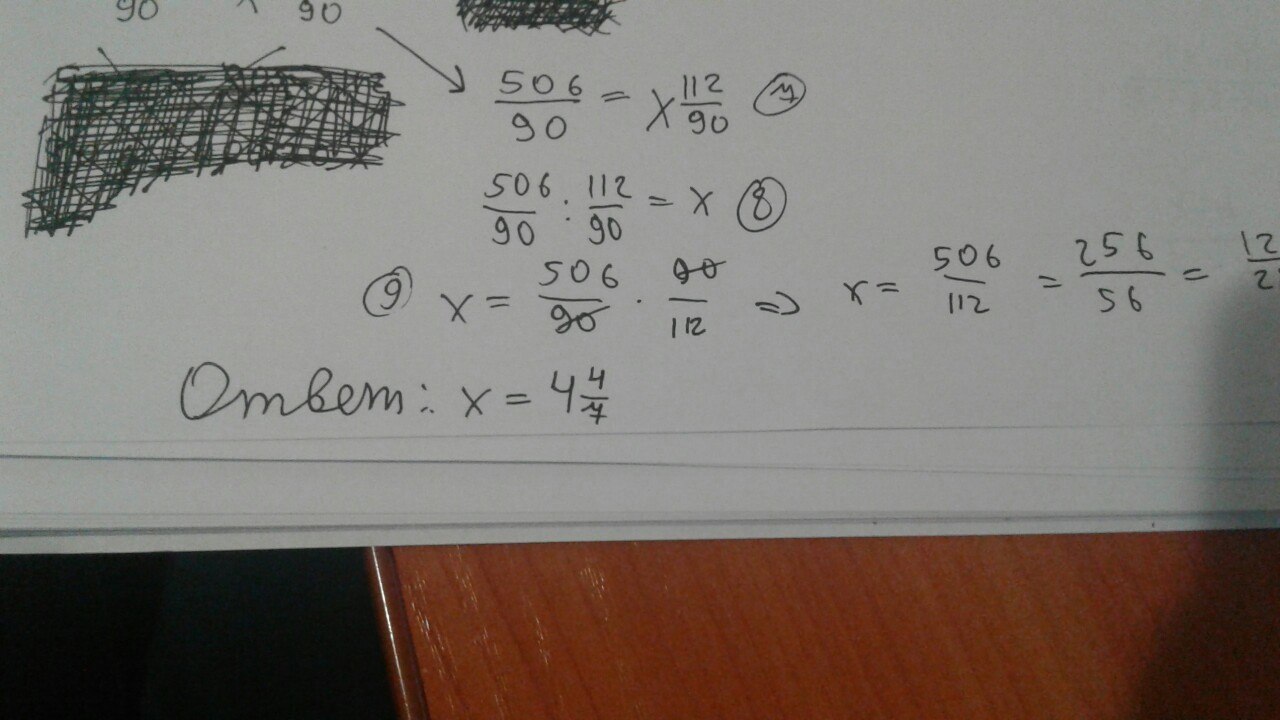 90 x 90
506/90 = x 112/90 ⑦
506/90 : 112/90 = x ⑧
⑨ x = 506/90 · 90/112 => x = 506/112 = 256/56 =
Ответ: x = 4 4/7